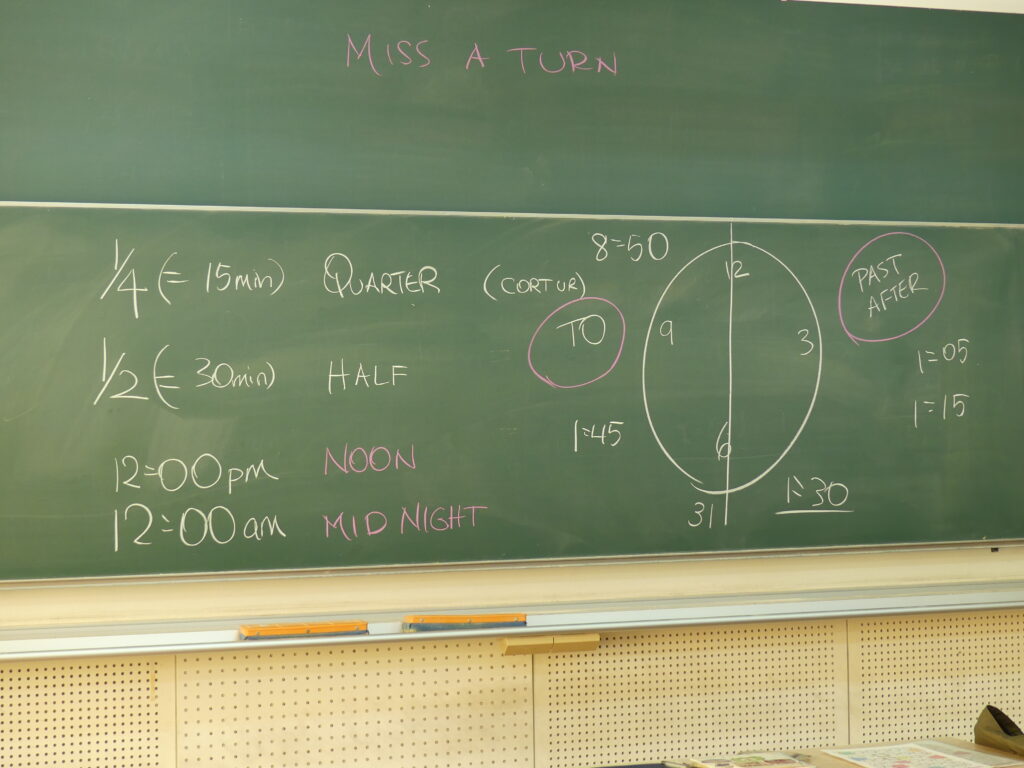 MISS A TURN
1/4 (= 15min) QUARTER (CORTUR)
1/2 (= 30min) HALF
12:00pm NOON
12:00am MIDNIGHT
8:50
TO
1:45
12
9
3
6
31
1:30
PAST
AFTER
1:05
1:15